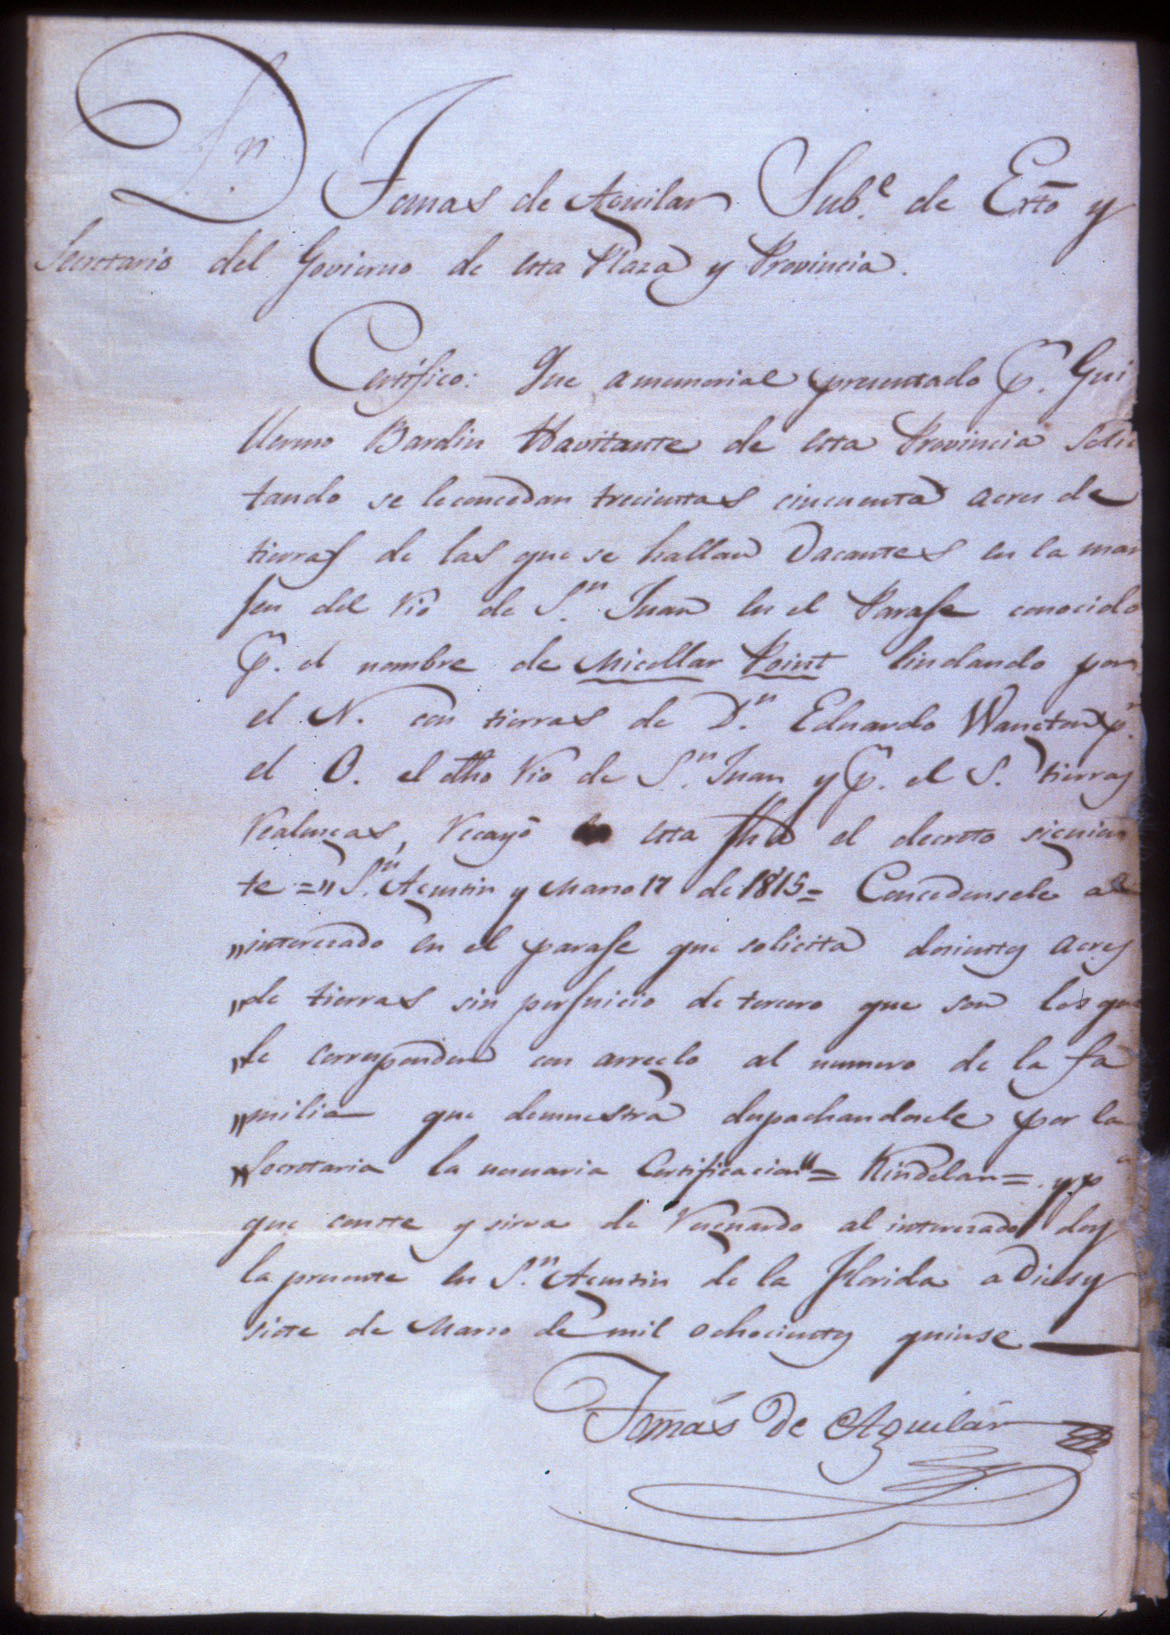 Dn Tomas de Aguilar Sub.e de Exto y
Secretario del Govierno de esta Plaza y Provincia.
Certifico: Que a memorial presentado p.r Gui
llermo Bardin Havitante de esta Provincia solici
tando se le concedan trecientas cincuenta acres de
tierras de las que se hallan Vacantes en la mar
jen del rio de S.n Juan en el Paraje conocido
p.r el nombre de Micellar Point lindando por
el N. con tierras de D.n Eduardo Wanton p.r
el O. el dho rio de S.n Juan y p.r el S. tierras
realengas, recayó esta fha el decreto siguien
te = "S.n Agustin y Marso 17 de 1815 = Concedensele al
"interezado en el paraje que solicita docientos acres
"de tierras sin perjuicio de tercero que son los que
"le corresponden con arreglo al numero de la fa
"milia que demuestra despachandosele por la
"Secretaria la nesesaria Certificacion" = Kindelan = y p.a
que conste y sirva de resguardo al interezado doy
la presente en S.n Agustin de la Florida a Dies y
siete de Marso de mil ochocientos quinse
Tomás de Aguilár